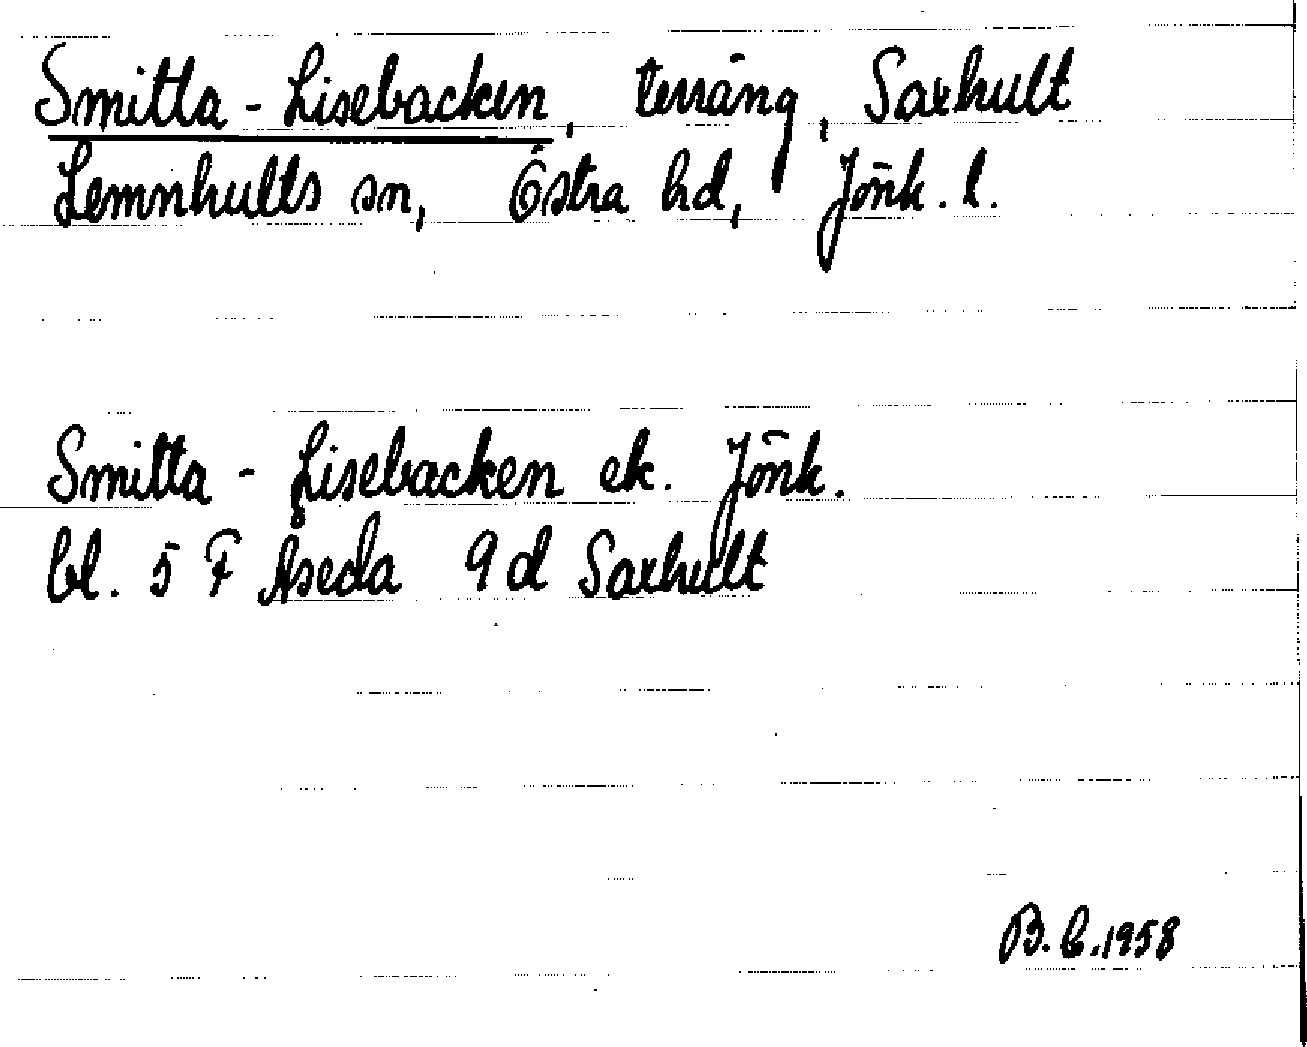 Smitta - Lisebacken, terräng, Saxhult
Lemnhults sn, Östra hd, Jönk. l.
Smitta - Lisebacken ek. Jönk.
bl. 5 F Åseda 9 d Saxhult
B. C. 1958